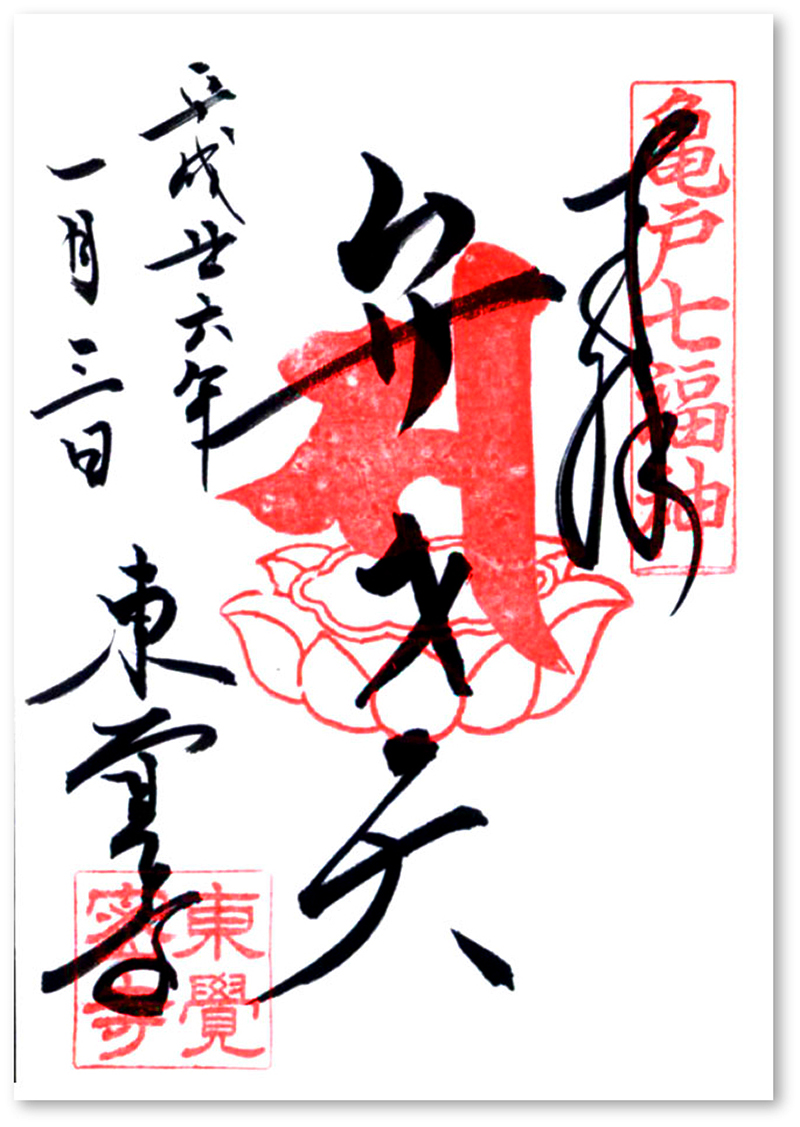 亀戸七福神
奉拝
弁才天
平成廿六年
一月三日
東覚寺
東覺
密寺